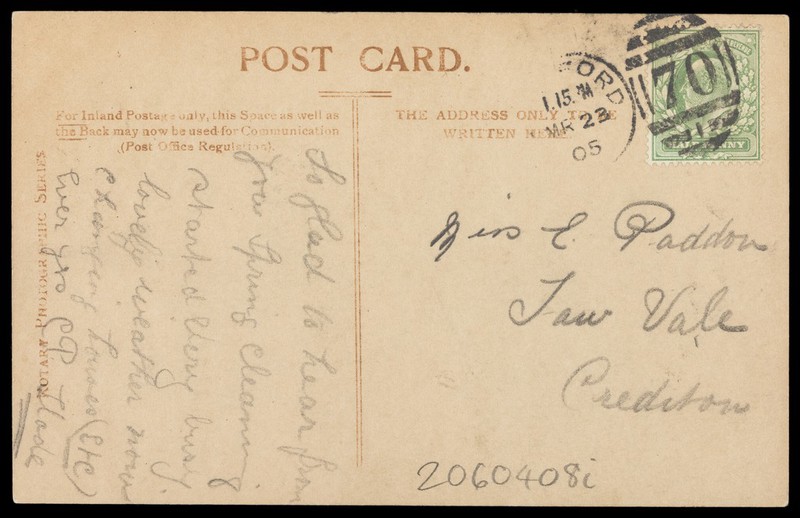 POST CARD.
For Inland Postage only, this Space as well as
the Back may now be used for Communication
(Post Office Regulation).
THE ADDRESS ONLY TO BE
WRITTEN HERE
ROTARY PHOTOGRAPHIC SERIES
So glad to hear from
you Spring Cleaning
started Very busy
lovely weather now
Changing houses (Etc)
Ever yrs
FORD
1.15. PM
MR 23
05
70
HALFPENNY
Miss E. Paddon
Taw Vale
Crediton
20604081i